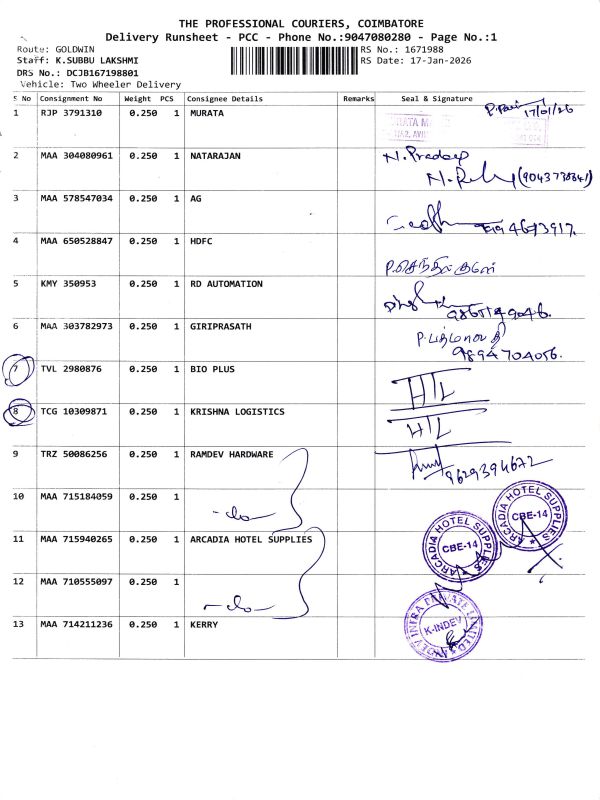 THE PROFESSIONAL COURIERS, COIMBATORE
Delivery Runsheet - PCC - Phone No.:9047080280 - Page No.:1
Route: GOLDWIN
Staff: K.SUBBU LAKSHMI
DRS No.: DCJB167198801
Vehicle: Two Wheeler Delivery
RS No.: 1671988
RS Date: 17-Jan-2026
S No Consignment No Weight PCS Consignee Details Remarks Seal & Signature
1 RJP 3791310 0.250 1 MURATA 17/01/26
2 MAA 304080961 0.250 1 NATARAJAN N. Pradeep
3 MAA 578547034 0.250 1 AG
4 MAA 650528847 0.250 1 HDFC
5 KMY 350953 0.250 1 RD AUTOMATION
6 MAA 303782973 0.250 1 GIRIPRASATH
9894704056.
7 TVL 2980876 0.250 1 BIO PLUS H/L
8 TCG 10309871 0.250 1 KRISHNA LOGISTICS H/L
9 TRZ 50086256 0.250 1 RAMDEV HARDWARE 9629394672
10 MAA 715184059 0.250 1 -do-
11 MAA 715940265 0.250 1 ARCADIA HOTEL SUPPLIES
ARCADIA HOTEL SUPPLIES CBE-14
ARCADIA HOTEL SUPPLIES CBE-14
12 MAA 710555097 0.250 1 -do-
13 MAA 714211236 0.250 1 KERRY
K-INDEV